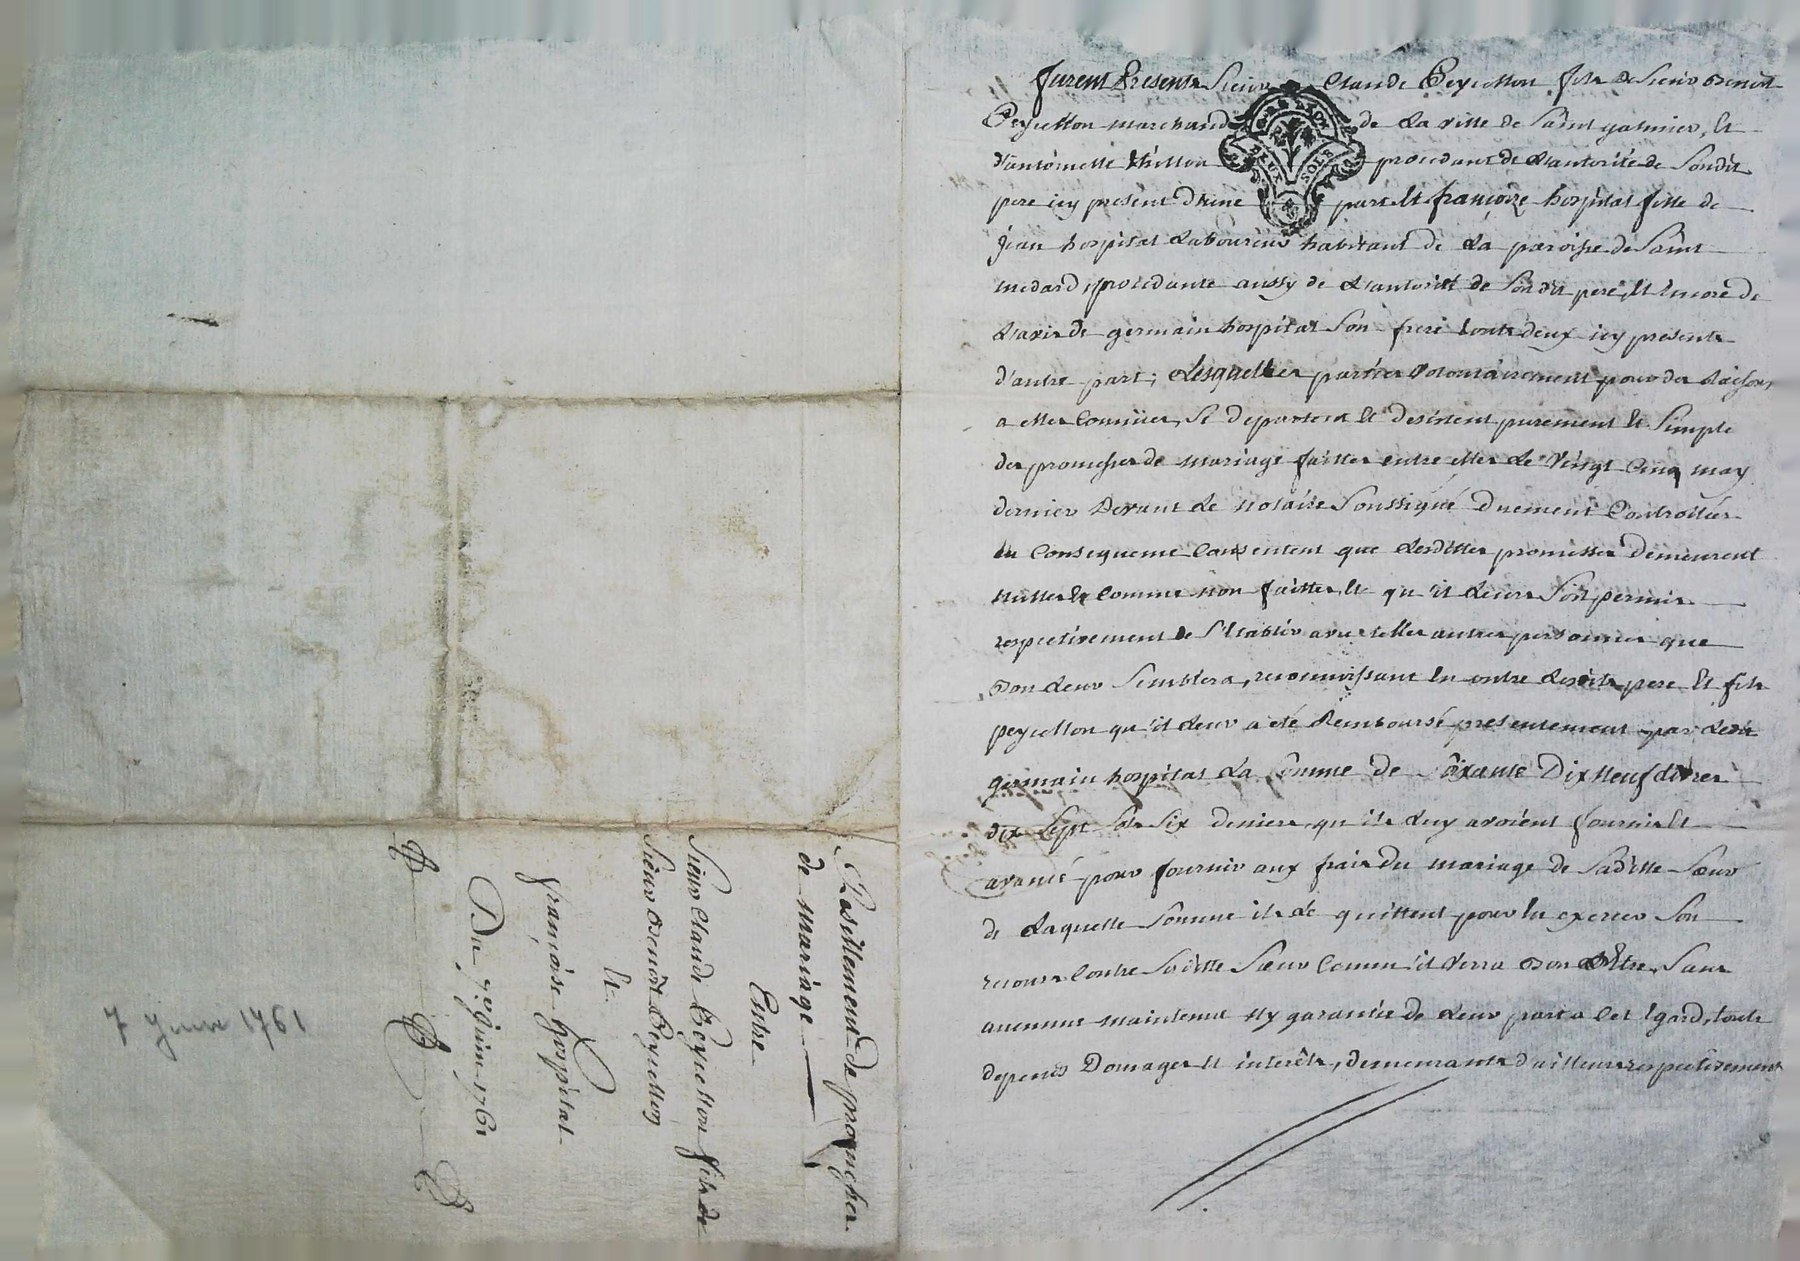 furent Presents Sieur Claude Peycellon fils de Sieur Benoit
Peycellon marchand de la ville de Saint galmier, Et
d'antoinette Thillon procedant de l'autorité de Sondit
pere icy present D'une part Et françoize hospital fille de
Jean hospital laboureur habitant de la paroisse de Saint
medard, procedante aussy de l'autorité de Sondit pere, Et Encore de
l'avis de germain hospital Son frere touts deux icy presents
d'autre part; Lesquelles parties volontairement pour des Raisons
a elles Connües, Se departent Et desistent purement Et Simple
des promesses de mariage faittes entre elles le Vingt Cinq may
dernier Devant le notaire Soussigné Duement Controllées
En Consequence Consentent que lesdittes promesses demeurent
nulles Et Comme non faittes, Et qu'il leurs Soit permis
respectivement de S'Etablir avec telles autres personnes que
Bon leur Semblera, reconnoissant En outre lesdits pere Et fils
peycellon qu'il leur a été Remboursé presentement par ledit
germain hospital La Somme de Soixante Dix Neuf livres
dix Sept Sols Six deniers qu'ils luy avoient fourni Et
avancé pour fournir aux frais du mariage de Saditte Sœur
de laquelle Somme ils le quittent pour En exercer Son
recours Contre Saditte Sœur Comm'il verra Bon Etre, Sans
aucunne maintenue Ny garantie de leur part a Cet Egard, touts
depends Domages Et interêts, demeurants d'ailleurs respectivement
GEN LYON
DEUX SOLS
Desistement de promesses
de mariage
Entre
Sieur Claude Peycellon fils de
Sieur Benoît Peycellon
Et
françoise hospital
Du 7e. Juin 1761
7 Juin 1761